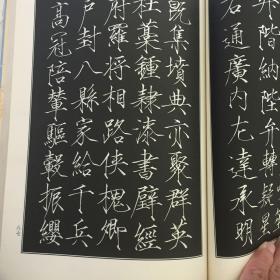 升階納陛弁轉疑星
右通廣內左達承明
既集墳典亦聚群英
杜藁鍾隸漆書壁經
府羅將相路俠槐卿
戶封八縣家給千兵
高冠陪輦驅轂振纓